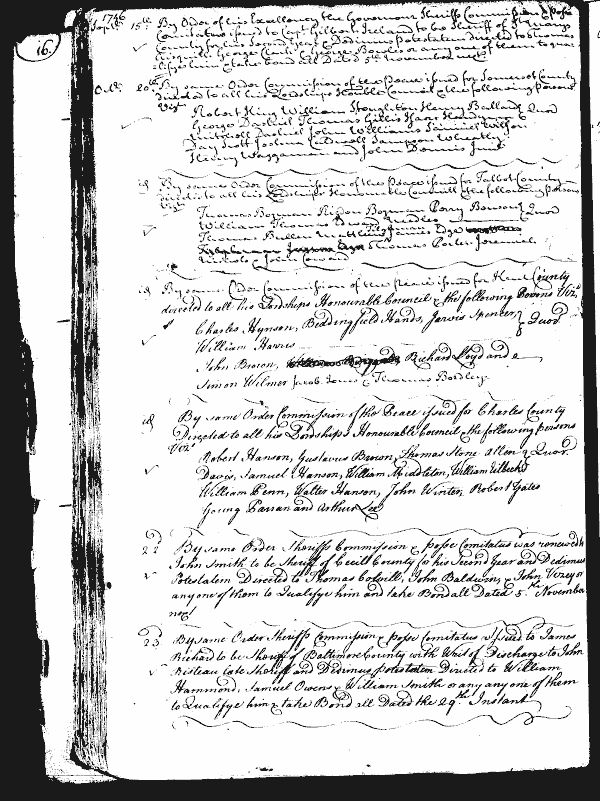 16.
1746
Sept. 15th By Order of his Excellency the Governour Sheriffs Commission & posse
Comitatus issued to Capt. Gilbert Ireland to be Sheriff of St. Marys
County for his Second Year & Dedimus Potestatem directed to
George Clark George Bowles or any one of them to qua
lifye him & take bond all Dated 5th November next
Oct. 20th By same Order Commission of the Peace issued for Somerset County
directed to all his Lordships Honble Council & the following Persons
Vizt
Robert King William Stoughton Henry Ballard Quor
George Dashiel Thomas Gillis Isaac Handy
Mitchell Dashiel John Williams Samuel Wilson
Day Scott Joshua Caldwell Sampson Wheatly
Henry Waggaman and John Dennis Junr
id By same Order Commission of the Peace issued for Talbot County
directed to all his Lordships Honourable Council & the following Persons
Vizt
Thomas Bozman Risdon Bozman Perry Benson Quor
William Thomas Edward Needles
Thomas Bullen Matthew James Edge
Thomas Porter Jeremiah
Nichols & John Coward
id By same Order Commission of the Peace issued for Kent County
directed to all his Lordships Honourable Council & the following Persons Vizt
Charles Hynson, Beddingfield Hands, Jarvis Spencer Quor
William Harris
John Brown, Richard Lloyd and
Simon Wilmer Jacob Jones & Thomas Bordley
id By same Order Commission of the Peace issued for Charles County
Directed to all his Lordships Honourable Council & the following persons
Vizt
Robert Hanson, Gustavus Brown, Thomas Stone Allen Quor
Davis, Samuel Hanson, William Middleton, William Eilbeck
William Penn, Walter Hanson, John Winter, Robert Yates
Young Parran and Arthur Lee
22 By same Order Sheriffs Commission & posse Comitatus was renewed to
John Smith to be Sheriff of Cecill County for his Second Year and Dedimus
Potestatem Directed to Thomas Colvill, John Baldwin, & John Veazey or
any one of them to Qualifye him and take Bond all Dated 5th November
next
23 By same Order Sheriffs Commission & posse Comitatus issued to James
Richard to be Sheriff of Baltimore County with Writ of Discharge to John
Risteau late Sheriff and Dedimus potestatem Directed to William
Hammond, Samuel Owens & William Smith or any any one of them
to Qualifye him & take Bond all Dated the 29th Instant